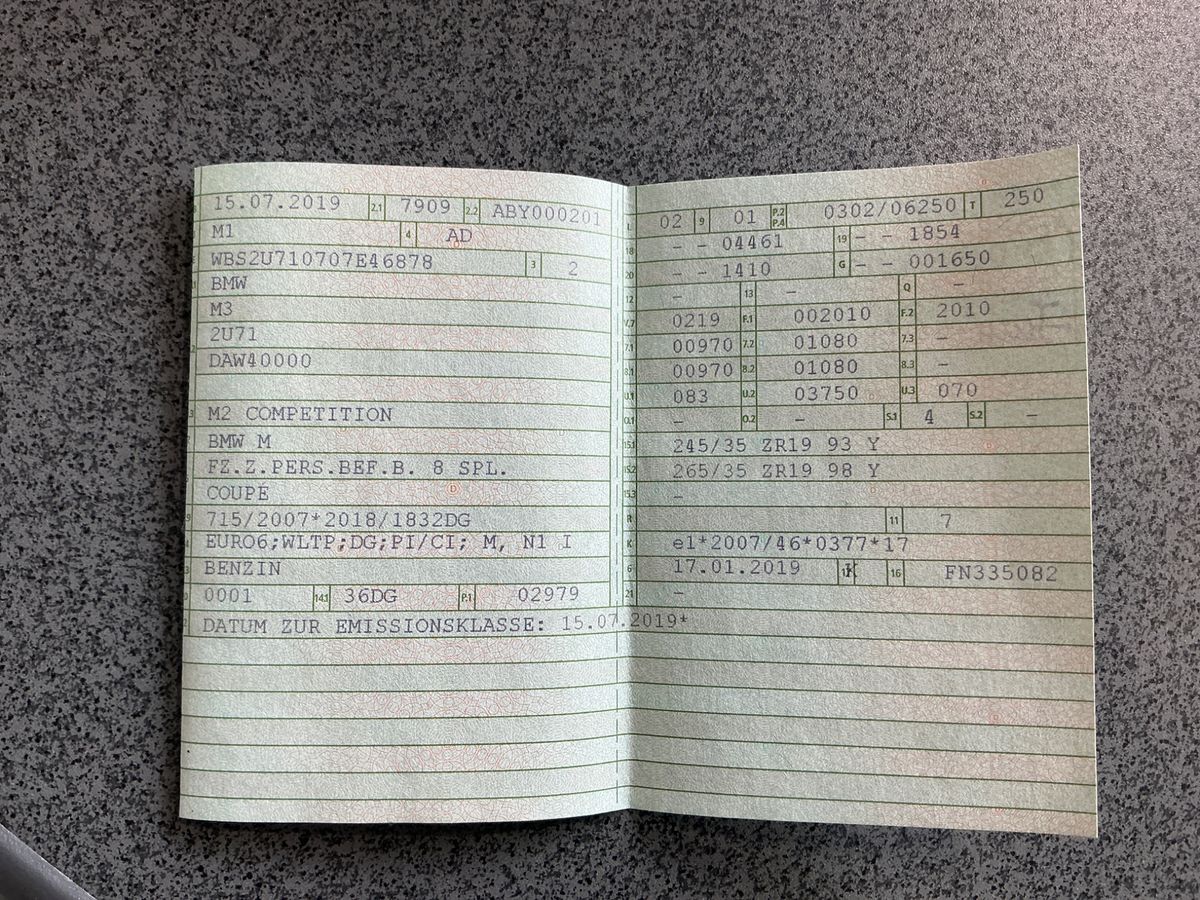 15.07.2019 2.1 7909 2.2 ABY000201
M1 4 AD
WBS2U710707E46878 3 2
BMW
M3
2U71
DAW40000
M2 COMPETITION
BMW M
FZ.Z.PERS.BEF.B. 8 SPL.
COUPÉ
715/2007*2018/1832DG
EURO6;WLTP;DG;PI/CI; M, N1 I
BENZIN
0001 14.1 36DG P.1 02979
DATUM ZUR EMISSIONSKLASSE: 15.07.2019*
L 02 9 01 P.2 P.4 0302/06250 T 250
18 - - 04461 19 - - 1854
20 - - 1410 G - - 001650
12 - 13 - Q -
V.7 0219 F.1 002010 F.2 2010
7.1 00970 7.2 01080 7.3 -
8.1 00970 8.2 01080 8.3 -
U.1 083 U.2 03750 U.3 070
O.1 - O.2 - S.1 4 S.2 -
15.1 245/35 ZR19 93 Y
15.2 265/35 ZR19 98 Y
15.3 -
R 11 7
K e1*2007/46*0377*17
6 17.01.2019 17 K 16 FN335082
21 -